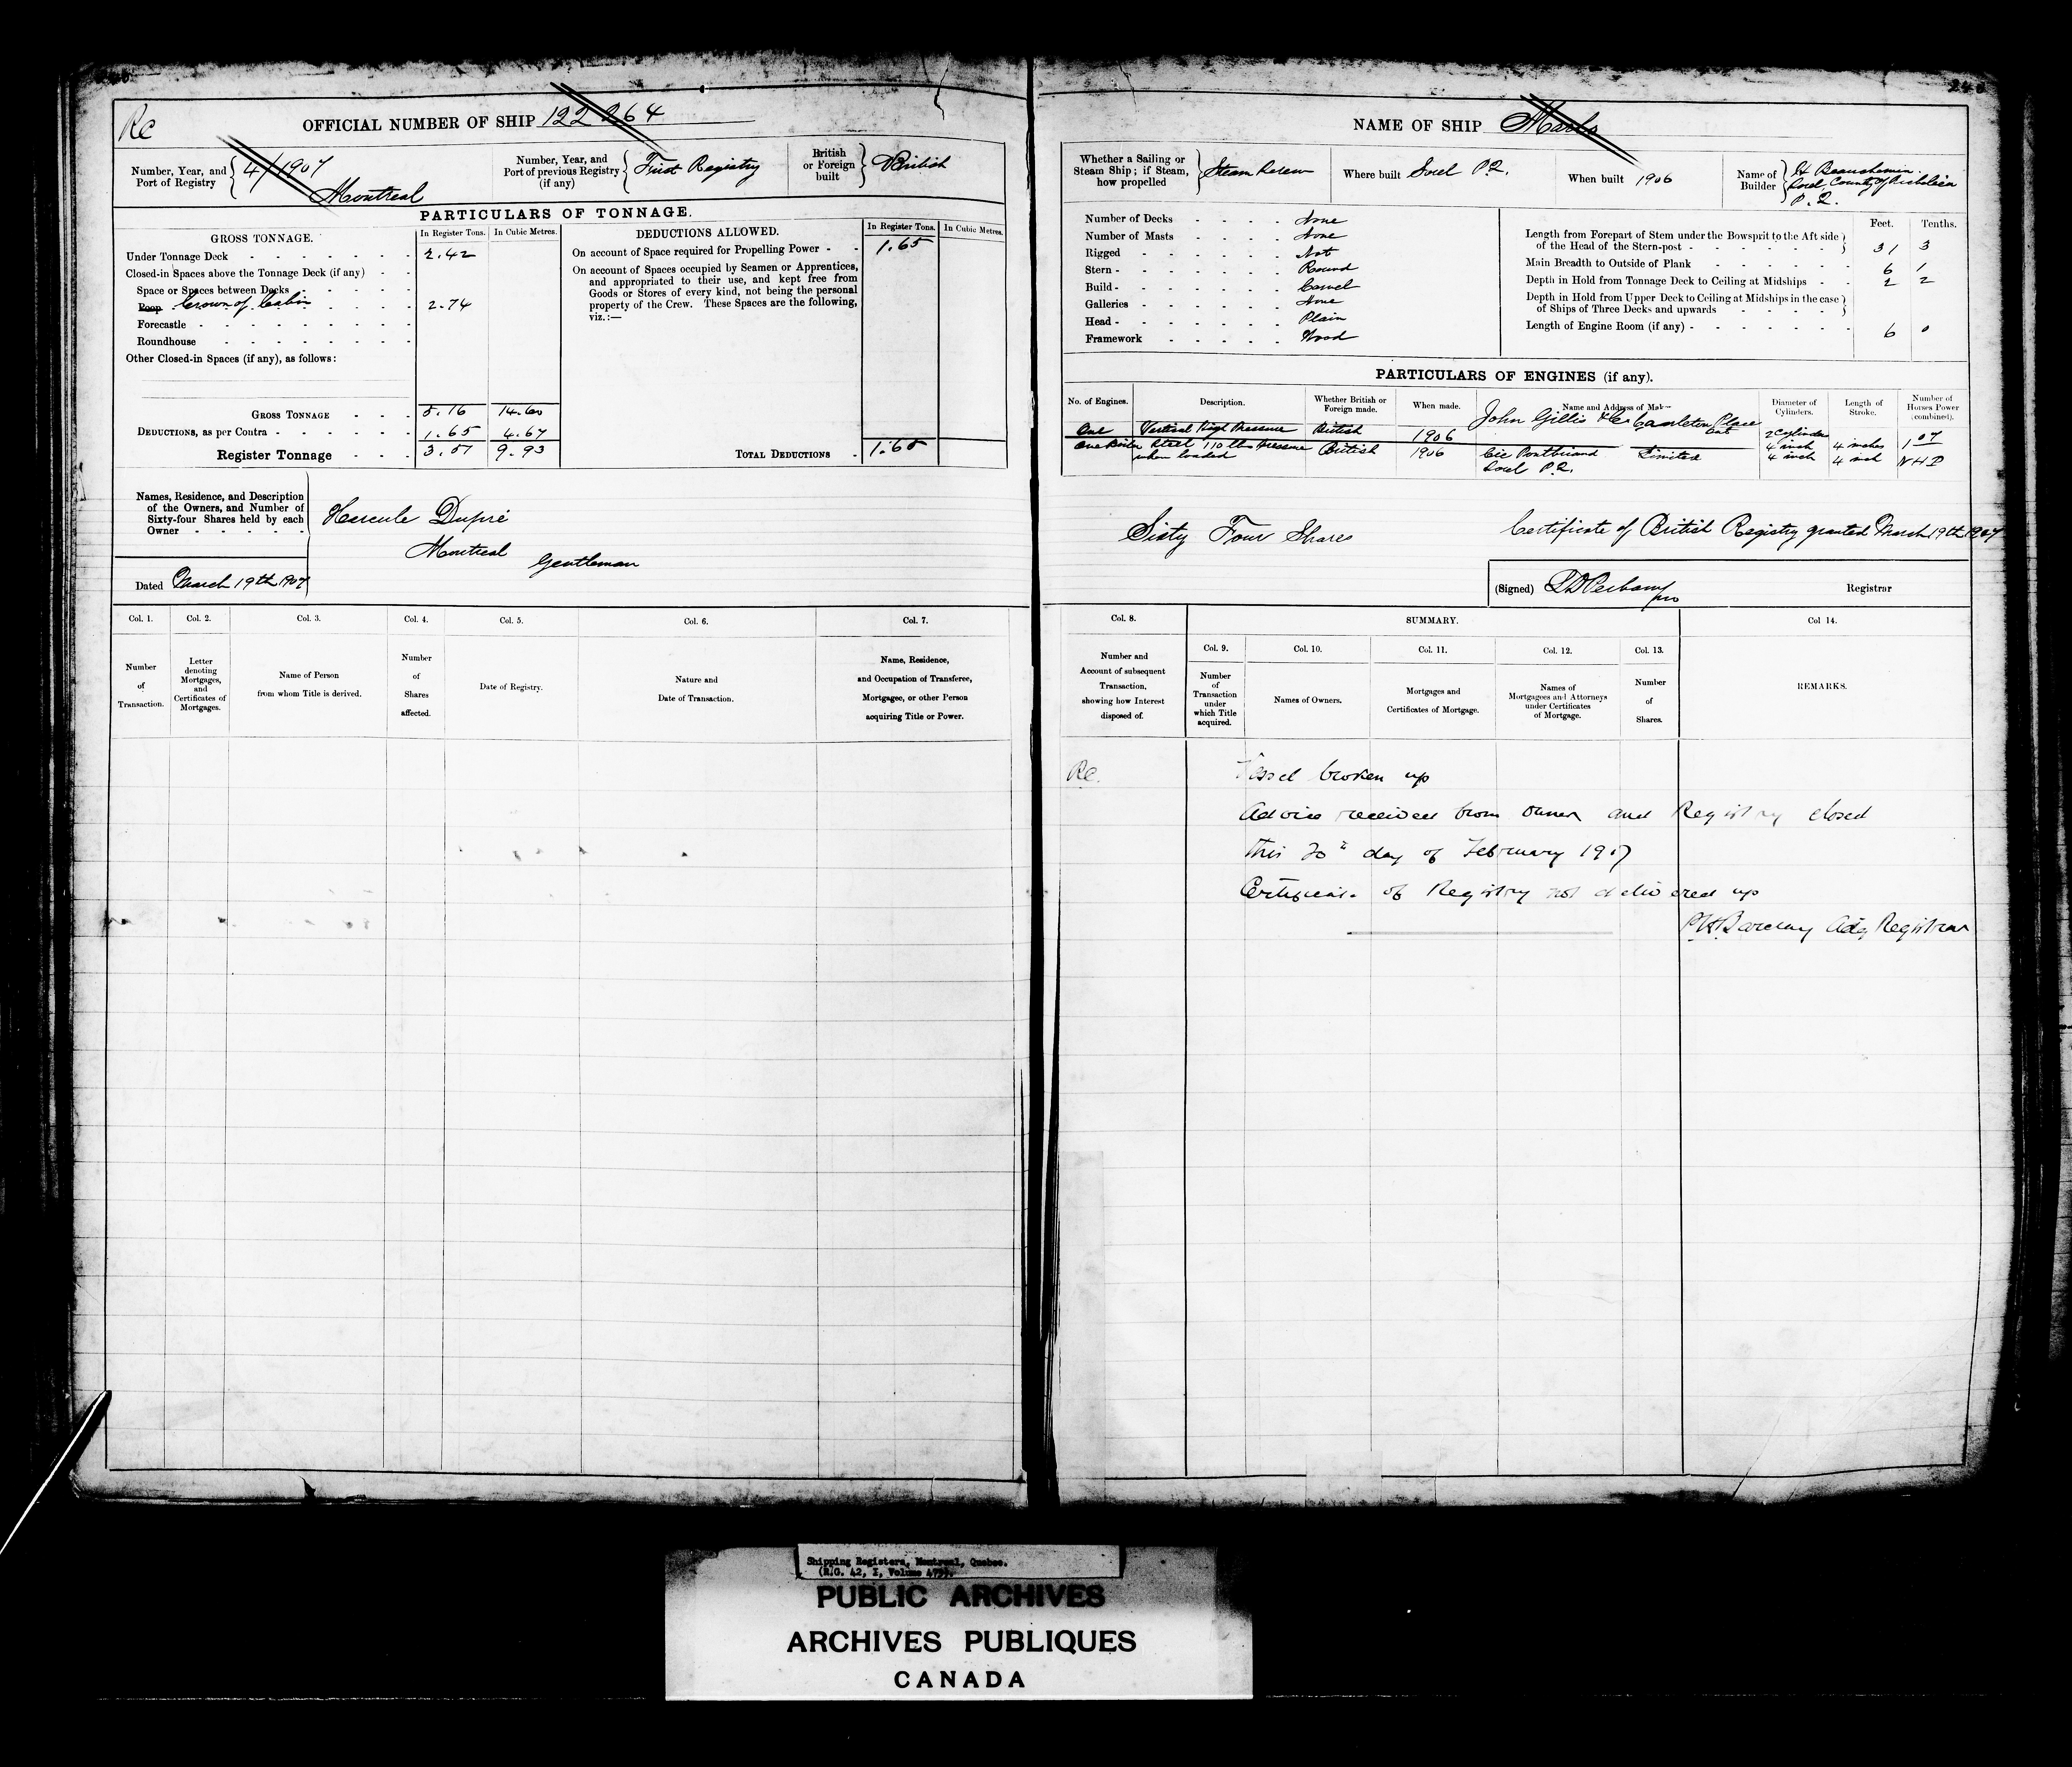 Rc
OFFICIAL NUMBER OF SHIP 122 264
Number, Year, and Port of Registry 4/1907 Montreal
Number, Year, and Port of previous Registry (if any) First Registry
British or Foreign built British
PARTICULARS OF TONNAGE.
GROSS TONNAGE. In Register Tons. In Cubic Metres.
Under Tonnage Deck 2.42
Closed-in Spaces above the Tonnage Deck (if any)
Space or Spaces between Decks
Poop Crown of Cabin 2.74
Forecastle
Roundhouse
Other Closed-in Spaces (if any), as follows:
GROSS TONNAGE 5.16 14.60
DEDUCTIONS, as per Contra 1.65 4.67
Register Tonnage 3.51 9.93
DEDUCTIONS ALLOWED. In Register Tons. In Cubic Metres.
On account of Space required for Propelling Power 1.65
On account of Spaces occupied by Seamen or Apprentices,
and appropriated to their use, and kept free from
Goods or Stores of every kind, not being the personal
property of the Crew. These Spaces are the following,
viz.:—
TOTAL DEDUCTIONS 1.65
Names, Residence, and Description
of the Owners, and Number of
Sixty-four Shares held by each
Owner
Hercule Dupré
Montreal
Gentleman
Dated March 19th 1907
Col. 1. Col. 2. Col. 3. Col. 4. Col. 5. Col. 6. Col. 7.
Number of Transaction.
Letter denoting Mortgages, and Certificates of Mortgages.
Name of Person from whom Title is derived.
Number of Shares affected.
Date of Registry.
Nature and Date of Transaction.
Name, Residence, and Occupation of Transferee, Mortgagee, or other Person acquiring Title or Power.
NAME OF SHIP
Whether a Sailing or Steam Ship; if Steam, how propelled Steam Screw
Where built Sorel P.Q.
When built 1906
Name of Builder H Beauchemin
Sorel, County of Richelieu
P.Q.
Number of Decks None
Number of Masts None
Rigged Not
Stern Round
Build Carvel
Galleries None
Head Plain
Framework Wood
Feet. Tenths.
Length from Forepart of Stem under the Bowsprit to the Aft side
of the Head of the Stern-post 31 3
Main Breadth to Outside of Plank 6 1
Depth in Hold from Tonnage Deck to Ceiling at Midships 2 2
Depth in Hold from Upper Deck to Ceiling at Midships in the case
of Ships of Three Decks and upwards
Length of Engine Room (if any) 6 0
PARTICULARS OF ENGINES (if any).
No. of Engines. Description. Whether British or Foreign made. When made. Name and Address of Makers Diameter of Cylinders. Length of Stroke. Number of Horses Power (combined).
One Vertical High Pressure British 1906 John Gillis & Co Carleton Place Ont 2 Cylinder 4 inch 4 inches 1 07
One Boiler Steel 110 lbs Pressure British 1906 Cie Pontbriand Limited 4 inch 4 inch NHP
when loaded Sorel P.Q.
Sixty Four Shares
Certificate of British Registry granted March 19th 1907
(Signed) Registrar
Col. 8. SUMMARY. Col 14.
Col. 9. Col. 10. Col. 11. Col. 12. Col. 13.
Number and Account of subsequent Transaction, showing how Interest disposed of.
Number of Transaction under which Title acquired.
Names of Owners.
Mortgages and Certificates of Mortgage.
Names of Mortgagees and Attorneys under Certificates of Mortgage.
Number of Shares.
REMARKS.
Rc. Vessel broken up
Advice received from Owner and Registry closed
This 20th day of February 1917
Certificate of Registry not delivered up
Barclay Actg Registrar
Shipping Registers, Montreal, Quebec.
PUBLIC ARCHIVES
ARCHIVES PUBLIQUES
CANADA